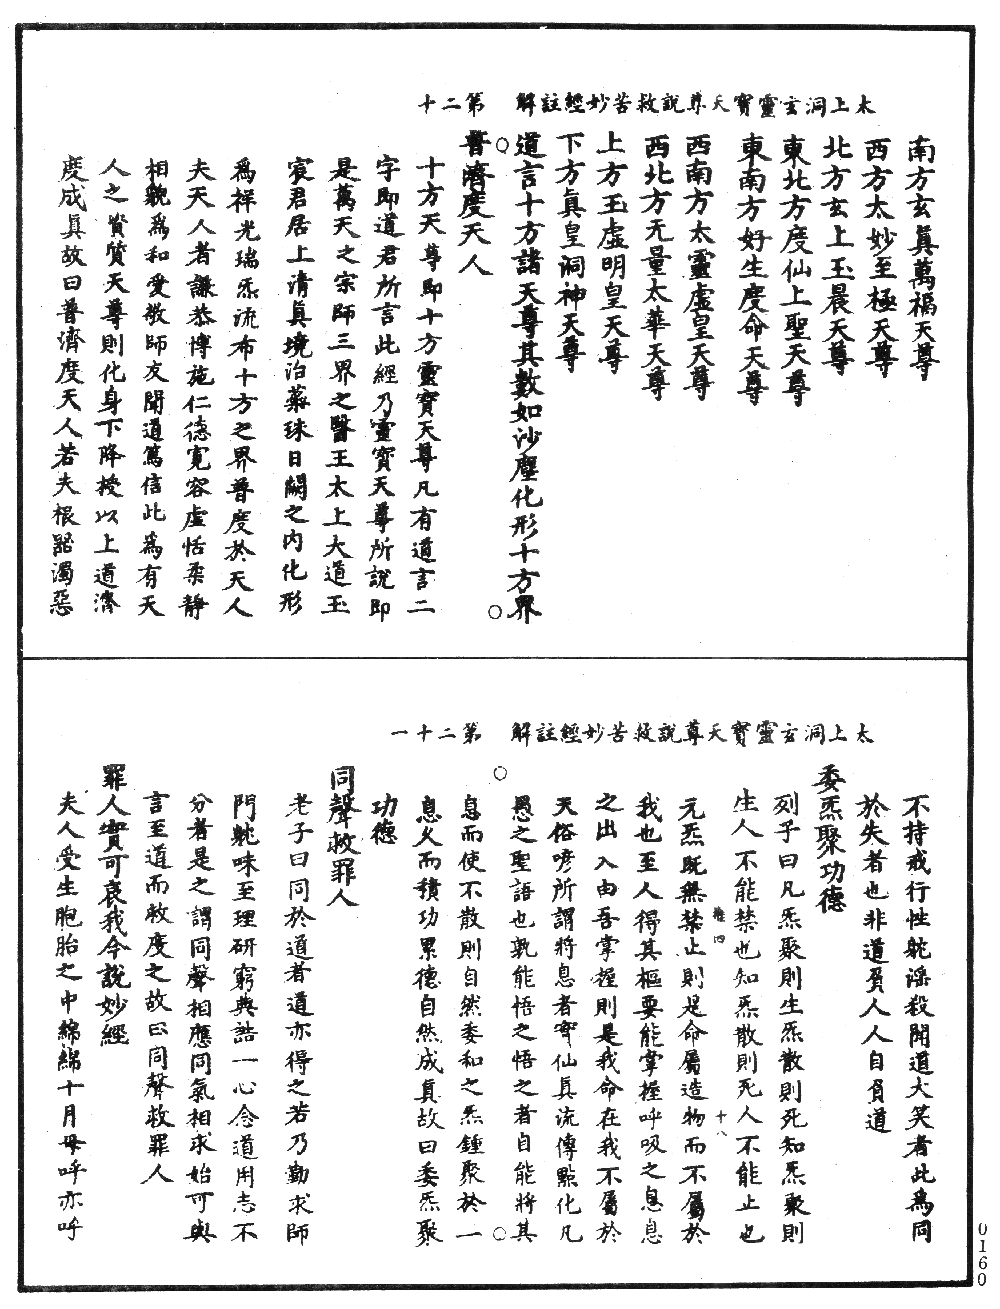 太上洞玄靈寳天尊說救苦妙經註解　第二十
南方玄眞萬福天尊
西方太妙至極天尊
北方玄上玉晨天尊
東北方度仙上聖天尊
東南方好生度命天尊
西南方太靈虛皇天尊
西北方无量太華天尊
上方玉虛明皇天尊
下方眞皇洞神天尊
道言十方諸天尊其數如沙塵化形十方界
普濟度天人
十方天尊即十方靈寳天尊凡有道言二
字即道君所言此經乃靈寳天尊所說即
是萬天之宗師三界之醫王太上大道玉
宸君居上清眞境治蘂珠日闕之内化形
爲祥光瑞炁流布十方之界普度於天人
夫天人者謙恭博施仁德寬容虛恬柔靜
相貌爲和愛敬師友聞道篤信此爲有天
人之資質天尊則化身下降授以上道濟
度成眞故曰普濟度天人若夫根器濁惡
太上洞玄靈寳天尊說救苦妙經註解　第二十一
不持戒行性躭滛殺聞道大笑者此爲同
於失者也非道負人人自負道
委炁聚功德
列子曰凡炁聚則生炁散則死知炁聚則
生人不能禁也知炁散則死人不能止也
元炁既無禁止則是命屬造物而不屬於
我也至人得其樞要能掌握呼吸之息息
之出入由吾掌握則是我命在我不屬於
天俗諺所謂將息者寔仙眞流傳點化凡
愚之聖語也孰能悟之悟之者自能將其
息而使不散則自然委和之炁鍾聚於一
息久而積功累德自然成眞故曰委炁聚
功德
同聲救罪人
老子曰同於道者道亦得之若乃勤求師
門躭味至理研窮典誥一心念道用志不
分者是之謂同聲相應同氣相求始可與
言至道而救度之故曰同聲救罪人
罪人實可哀我今說妙經
夫人受生胞胎之中綿綿十月母呼亦呼
四
十八
0160